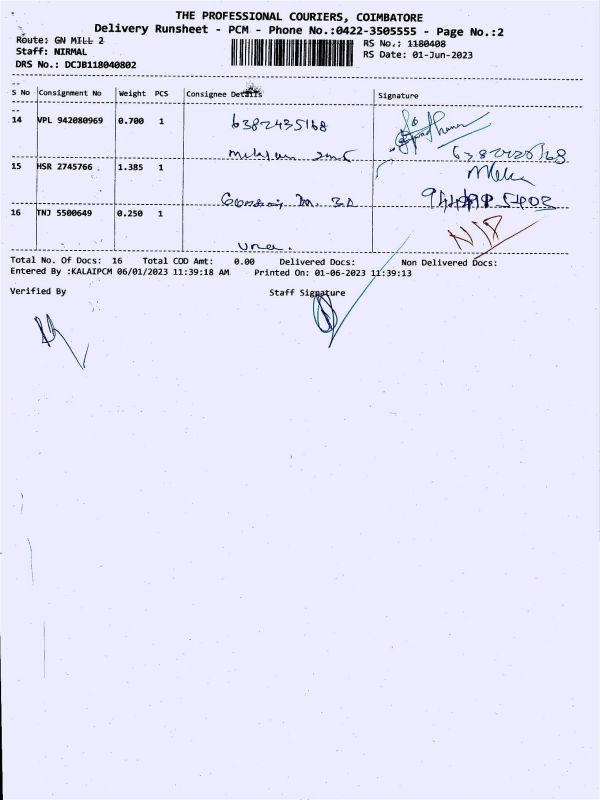 THE PROFESSIONAL COURIERS, COIMBATORE
Delivery Runsheet - PCM - Phone No.:0422-3505555 - Page No.:2
Route: GN MILL 2
RS No.: 1180408
Staff: NIRMAL
RS Date: 01-Jun-2023
DRS No.: DCJB118040802
S No Consignment No Weight PCS Consignee Details Signature
14 VPL 942080969 0.700 1 6382435168
15 HSR 2745766 1.385 1
16 TNJ 5500649 0.250 1
Total No. Of Docs: 16 Total COD Amt: 0.00 Delivered Docs: Non Delivered Docs:
Entered By :KALAIPCM 06/01/2023 11:39:18 AM Printed On: 01-06-2023 11:39:13
Verified By Staff Signature